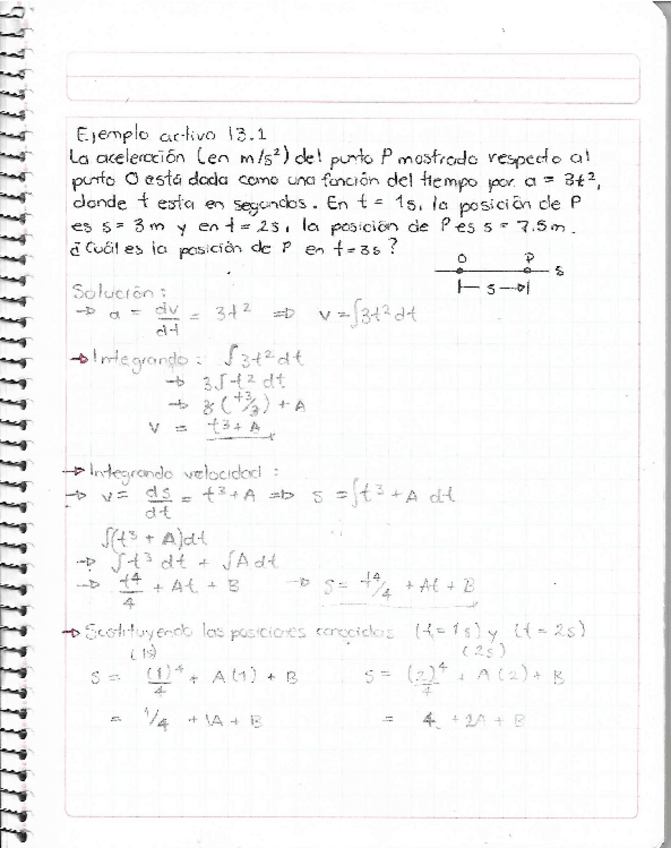 Ejemplo activo 13.1
La aceleración (en m/s²) del punto P mostrado respecto al
punto O está dada como una función del tiempo por a = 3t²,
donde t esta en segundos. En t = 1s, la posición de P
es s = 3m y en t = 2s, la posición de P es s = 7.5m.
¿Cuál es la posición de P en t=3s?
O P s
s
Solución:
→ a = dv/dt = 3t² ⇒ v = ∫3t² dt
→ Integrando: ∫3t² dt
→ 3∫t² dt
→ 3(t³/3) + A
v = t³ + A
→ Integrando velocidad:
→ v = ds/dt = t³ + A ⇒ s = ∫t³ + A dt
∫(t³ + A)dt
→ ∫t³ dt + ∫A dt
→ t⁴/4 + At + B → s = t⁴/4 + At + B
→ Sustituyendo las posiciones conocidas (t=1s) y (t=2s)
(1s) (2s)
s = (1)⁴/4 + A(1) + B s = (2)⁴/4 + A(2) + B
= 1/4 + 1A + B = 4 + 2A + B